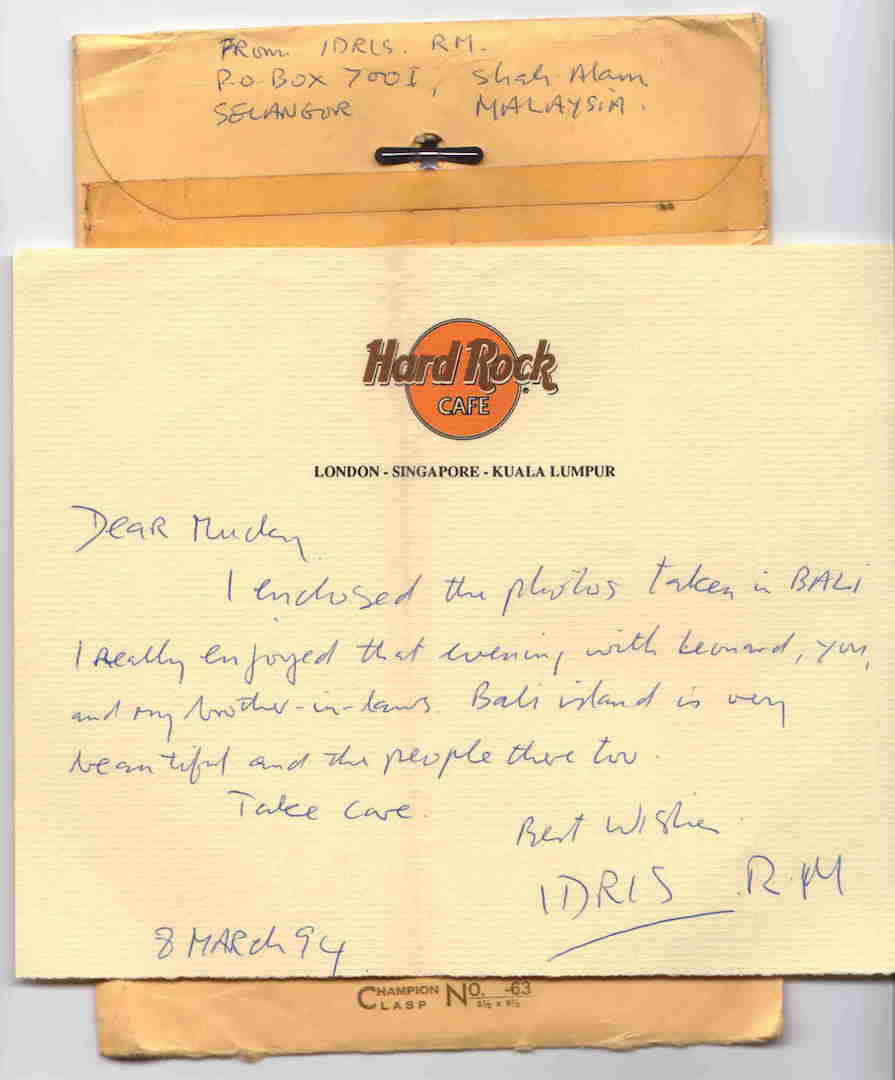 FROM. IDRIS. RM.
P.O. BOX 7001, Shah Alam
SELANGOR MALAYSIA.
Hard Rock
CAFE
LONDON - SINGAPORE - KUALA LUMPUR
Dear
I enclosed the photos taken in BALI
I really enjoyed that evening with Leonard, you,
and my brother-in-laws. Bali island is very
beautiful and the people there too.
Take care.
Best Wishes
IDRIS R.M
8 MARCH 94
CHAMPION
CLASP NO. -63